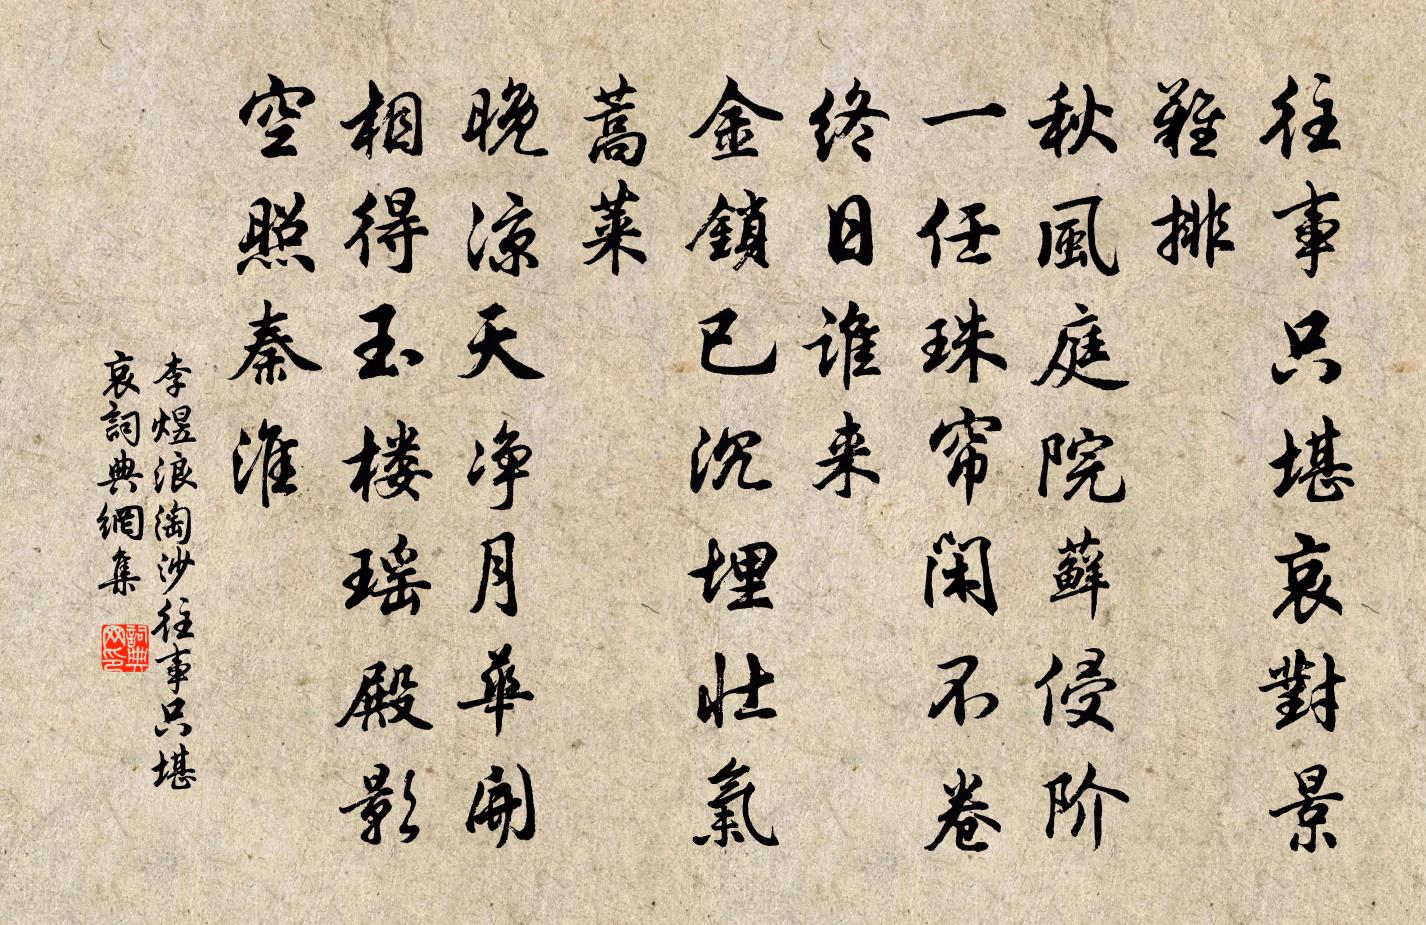 往事只堪哀對景
難排
秋風庭院蘚侵阶
一任珠帘闲不卷
終日誰来
金鎖已沉埋壯氣
蒿莱
晚凉天净月華開
相得玉楼瑶殿影
空照秦淮
李煜浪淘沙往事只堪
哀詞典網集
詞典
网印